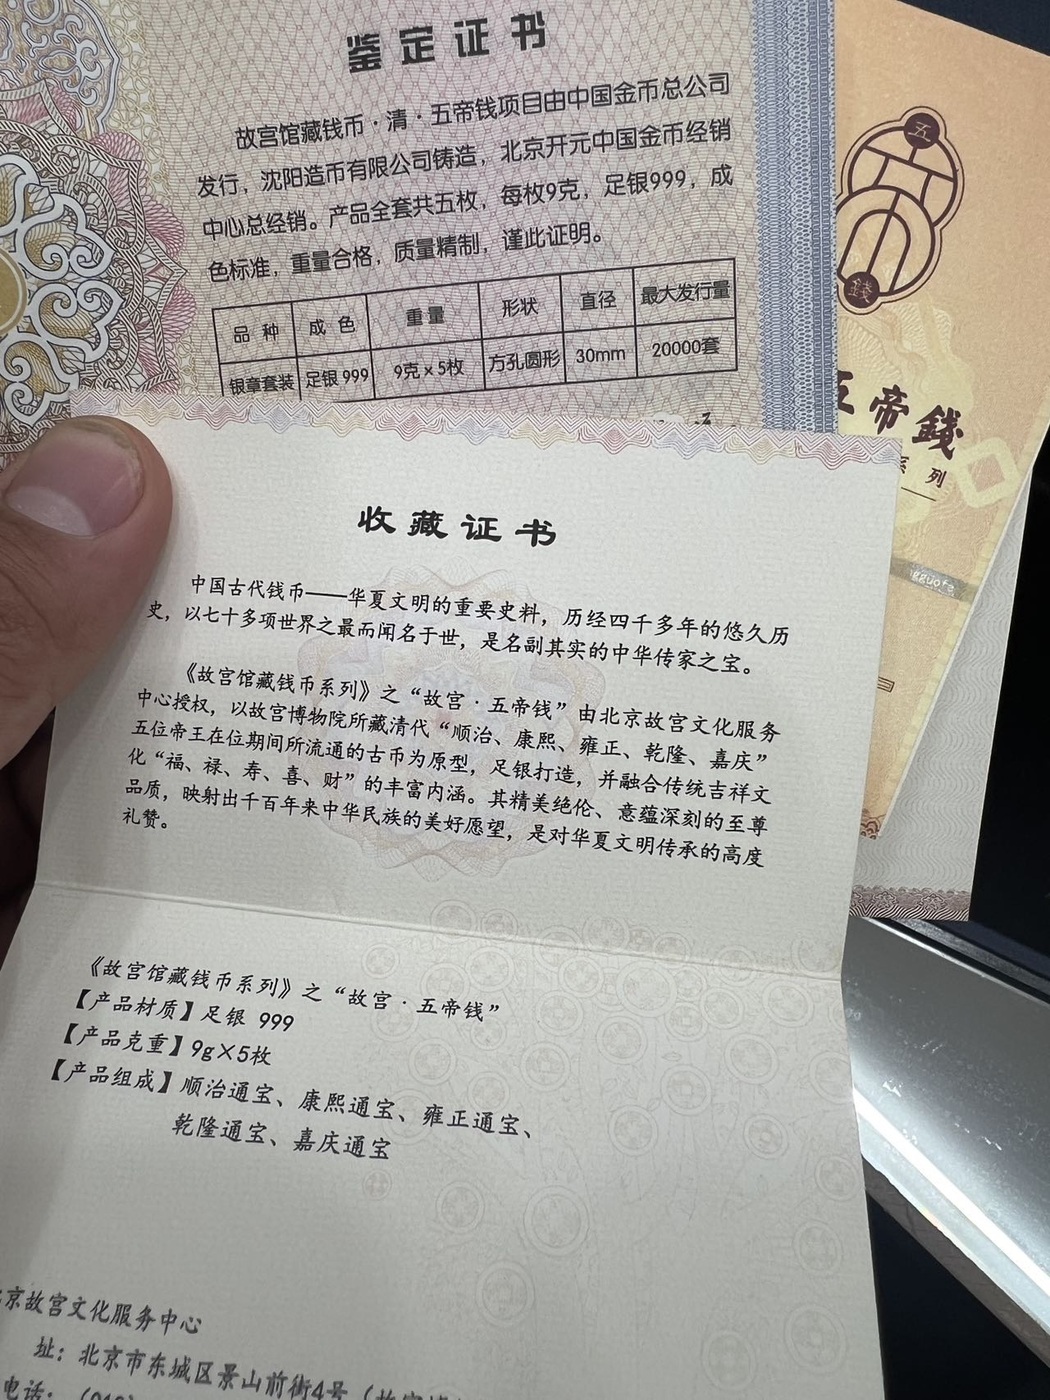 鉴定证书
故宫馆藏钱币·清·五帝钱项目由中国金币总公司
发行，沈阳造币有限公司铸造，北京开元中国金币经销
中心总经销。产品全套共五枚，每枚9克，足银999，成
色标准，重量合格，质量精制，谨此证明。
品种 成色 重量 形状 直径 最大发行量
银章套装 足银999 9克×5枚 方孔圆形 30mm 20000套
五
錢
五帝錢
系列
收藏证书
中国古代钱币——华夏文明的重要史料，历经四千多年的悠久历
史，以七十多项世界之最而闻名于世，是名副其实的中华传家之宝。
《故宫馆藏钱币系列》之“故宫·五帝钱”由北京故宫文化服务
中心授权，以故宫博物院所藏清代“顺治、康熙、雍正、乾隆、嘉庆”
五位帝王在位期间所流通的古币为原型，足银打造，并融合传统吉祥文
化“福、禄、寿、喜、财”的丰富内涵。其精美绝伦、意蕴深刻的至尊
品质，映射出千百年来中华民族的美好愿望，是对华夏文明传承的高度
礼赞。
《故宫馆藏钱币系列》之“故宫·五帝钱”
【产品材质】足银 999
【产品克重】9g×5枚
【产品组成】顺治通宝、康熙通宝、雍正通宝、
乾隆通宝、嘉庆通宝
京故宫文化服务中心
址：北京市东城区景山前街4号
电话：